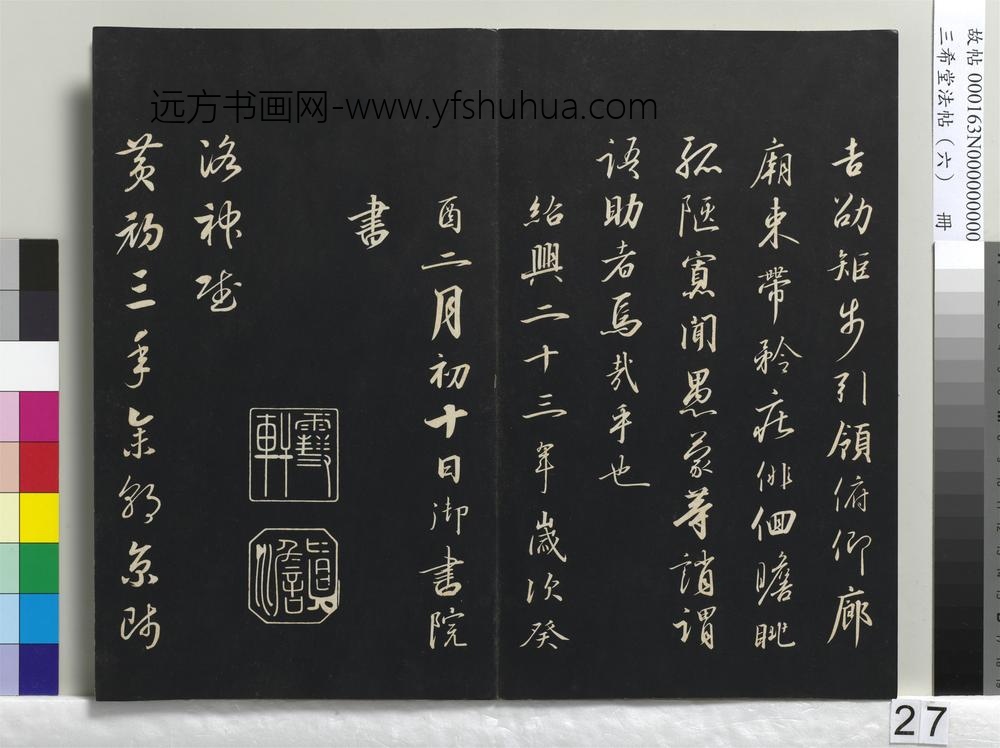 吉劭矩步引領俯仰廊
廟束帶矜莊俳佪瞻眺
孤陋寡聞愚蒙等誚謂
語助者焉哉乎也
紹興二十三年歲次癸
酉二月初十日御書院
書
洛神賦
黃初三年余朝京師
远方书画网-www.yfshuhua.com
故帖 000163N000000000
三希堂法帖（六） 冊
27